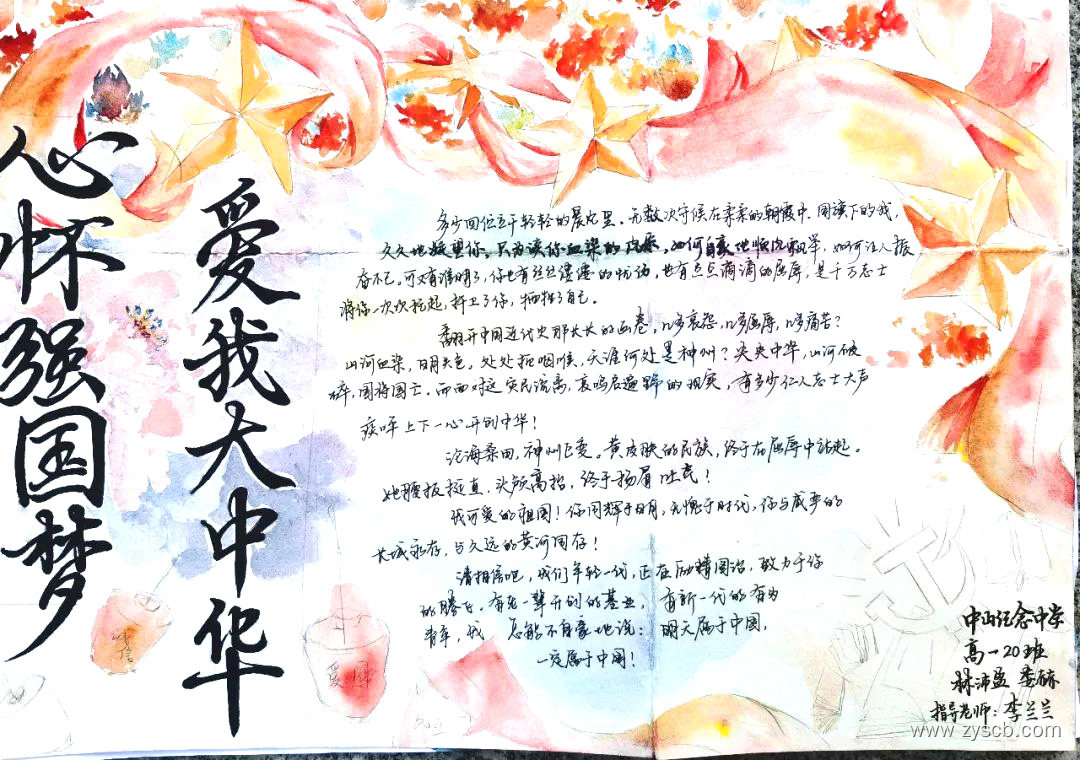 心怀强国梦
爱我大中华
多少回伫立于轻轻的晨光里。无数次守候在柔柔的朝霞中。国旗下的我，
久久地凝望你，只为读你血染的风采，如何自豪地顺风飘举，如何让人振
奋不已。可又有谁明了，你也有丝丝缕缕的忧伤，也有点点滴滴的屈辱，是千万志士
将你一次次托起，捍卫了你，牺牲了自己。
翻开中国近代史那长长的画卷，几多哀怨，几多屈辱，几多痛苦？
山河血染，日月失色。处处扼咽喉，天涯何处是神州？泱泱中华，山河破
碎，国将国亡。而面对这灾民流离，哀鸣启遍野的现实，有多少仁人志士大声
疾呼上下一心开创中华！
沧海桑田，神州巨变。黄皮肤的民族，终于在屈辱中站起。
她腰板挺直，头颅高抬，终于扬眉吐气！
我可爱的祖国！你同辉于日月，无愧于时代，你与威严的
长城永存，与久远的黄河同存！
请相信吧，我们年轻一代，正在励精图治，致力于你
的腾飞。有老一辈开创的基业，有新一代的有为
青年，我怎能不自豪地说：明天属于中国，
一定属于中国！
诚信
爱国
中山纪念中学
高一20班
林沛盈
指导老师：李兰兰
www.zyscb.com